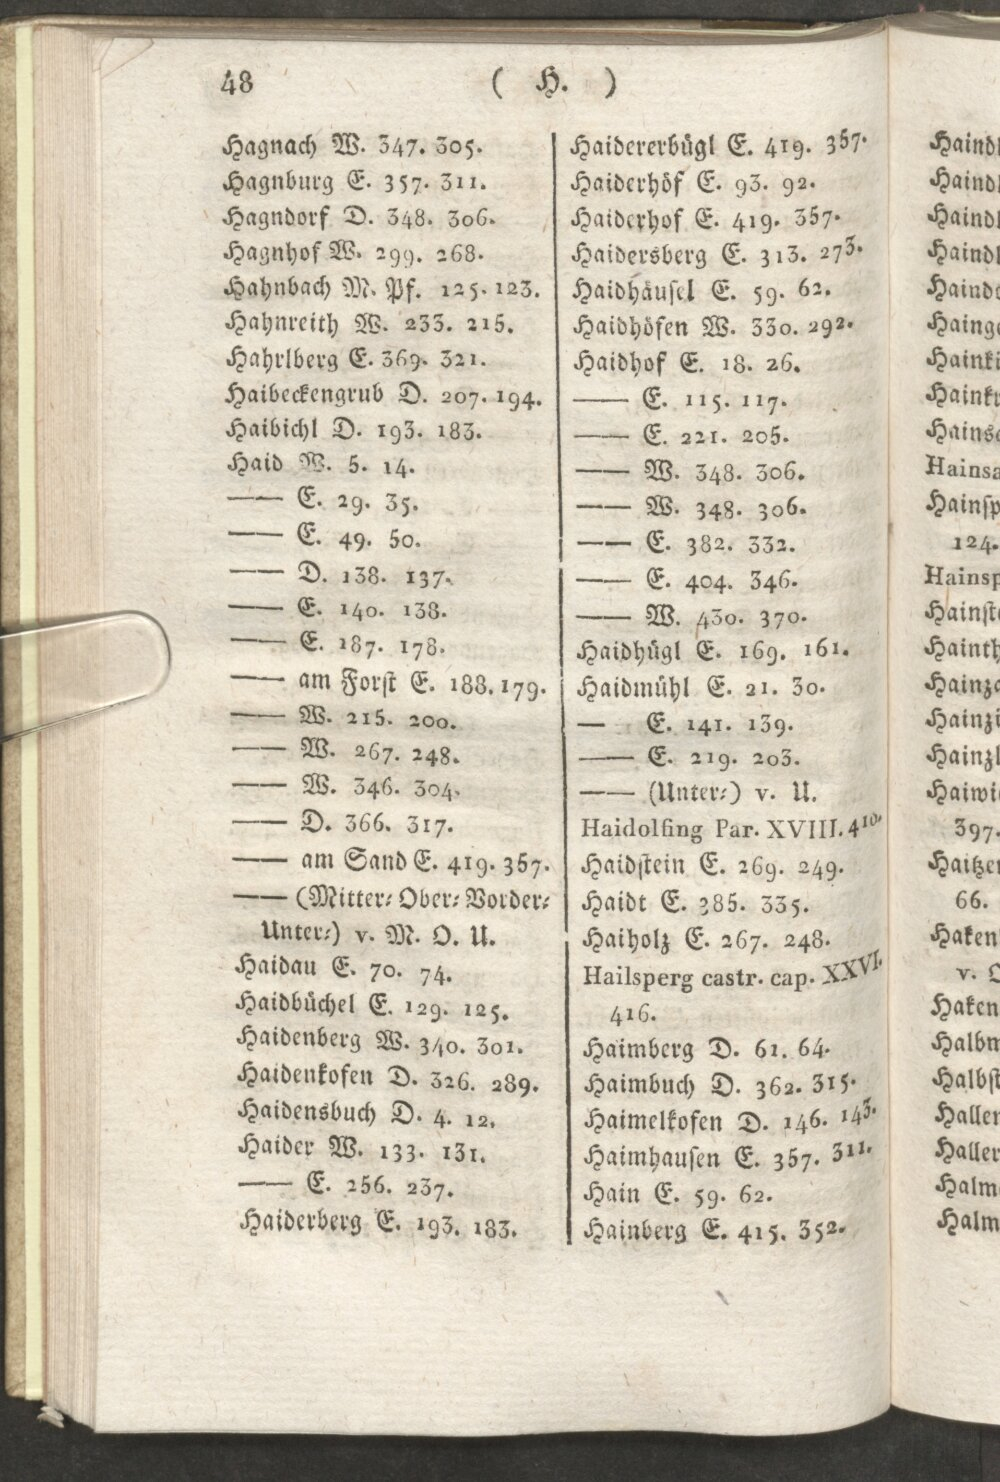 48
( H. )
Hagnach W. 347. 305.
Hagnburg E. 357. 311.
Hagndorf D. 348. 306.
Hagnhof W. 299. 268.
Hahnbach M. Pf. 125. 123.
Hahnreith W. 233. 215.
Hahrlberg E. 369. 321.
Haibeckengrub D. 207. 194.
Haibichl D. 193. 183.
Haid W. 5. 14.
—— E. 29. 35.
—— E. 49. 50.
—— D. 138. 137.
—— E. 140. 138.
—— E. 187. 178.
—— am Forst E. 188. 179.
—— W. 215. 200.
—— W. 267. 248.
—— W. 346. 304.
—— D. 366. 317.
—— am Sand E. 419. 357.
—— (Mitter⸗ Ober⸗ Vorder⸗
Unter⸗) v. M. O. U.
Haidau E. 70. 74.
Haidbüchel E. 129. 125.
Haidenberg W. 340. 301.
Haidenkofen D. 326. 289.
Haidensbuch D. 4. 12.
Haider W. 133. 131.
—— E. 256. 237.
Haiderberg E. 193. 183.
Haidererbügl E. 419. 357.
Haiderhöf E. 93. 92.
Haiderhof E. 419. 357.
Haidersberg E. 313. 273.
Haidhäusel E. 59. 62.
Haidhöfen W. 330. 292.
Haidhof E. 18. 26.
—— E. 115. 117.
—— E. 221. 205.
—— W. 348. 306.
—— W. 348. 306.
—— E. 382. 332.
—— E. 404. 346.
—— W. 430. 370.
Haidhügl E. 169. 161.
Haidmühl E. 21. 30.
— E. 141. 139.
—— E. 219. 203.
—— (Unter⸗) v. U.
Haidolfing Par. XVIII. 410.
Haidstein E. 269. 249.
Haidt E. 385. 335.
Haiholz E. 267. 248.
Hailsperg castr. cap. XXVI.
416.
Haimberg D. 61. 64.
Haimbuch D. 362. 315.
Haimelkofen D. 146. 143.
Haimhausen E. 357. 311.
Hain E. 59. 62.
Hainberg E. 415. 352.
124.
397.
66.